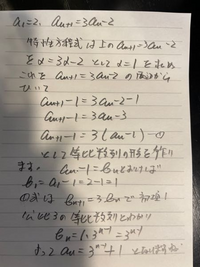 a₁=2, aₙ₊₁=3aₙ-2
特性方程式は上の aₙ₊₁=3aₙ-2
を α=3α-2 として α=1 を求め
これを aₙ₊₁=3aₙ-2 の両辺から
ひいて
aₙ₊₁-1=3aₙ-2-1
aₙ₊₁-1=3aₙ-3
aₙ₊₁-1=3(aₙ-1)-①
として等比数列の形を作り
ます。 aₙ-1=bₙとおけば
b₁=a₁-1=2-1=1
①式は bₙ₊₁=3bₙで 初項1
公比3の等比数列とわかり
bₙ=1・3ⁿ⁻¹=3ⁿ⁻¹
よって aₙ=3ⁿ⁻¹+1 と